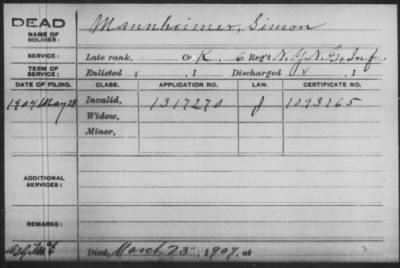 DEAD
NAME OF SOLDIER:
Mannheimer, Simon
SERVICE:
Late rank, Co. K, 6 Reg't N.Y.N.G. Inf.
TERM OF SERVICE:
Enlisted , 1 Discharged , 1
DATE OF FILING. CLASS. APPLICATION NO. LAW. CERTIFICATE NO.
1904 May 28 Invalid, 1317270 1093165
Widow,
Minor,
ADDITIONAL SERVICES:
REMARKS:
Died, March 23", 1907, at